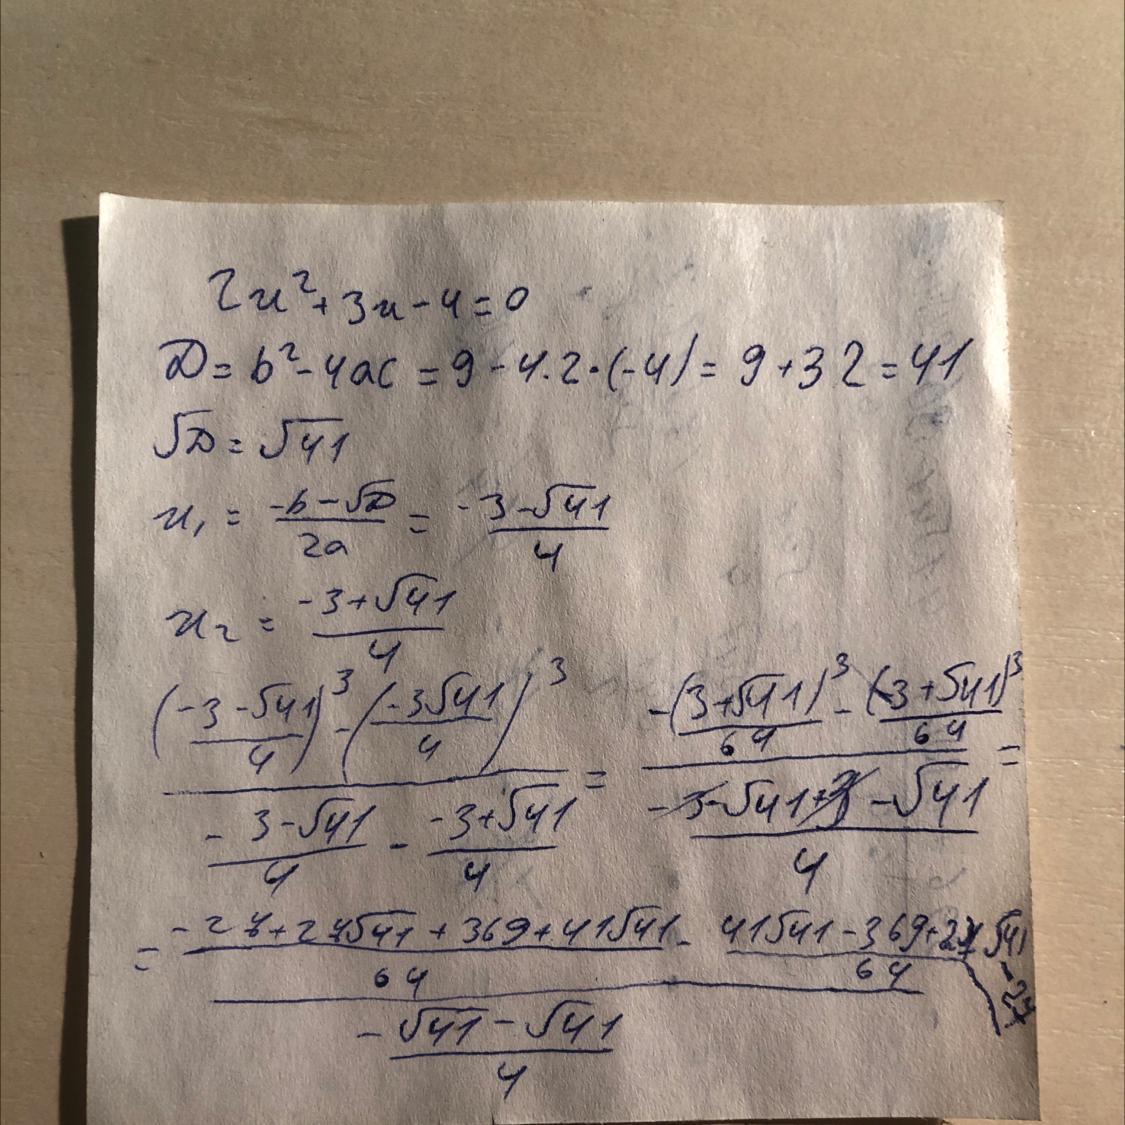 2x²+3x-4=0
D=b²-4ac=9-4·2·(-4)=9+32=41
√D=√41
x₁ = (-b-√D)/2a = (-3-√41)/4
x₂ = (-3+√41)/4
(((-3-√41)/4)³-((-3√41)/4)³)/((-3-√41)/4 - (-3+√41)/4) = (-(3+√41)³/64 - (-3+√41)³/64)/((-3-√41+3-√41)/4) =
= ((-27+27√41+369+41√41)/64 - (41√41-369+27√41-27)/64)/((-√41-√41)/4)